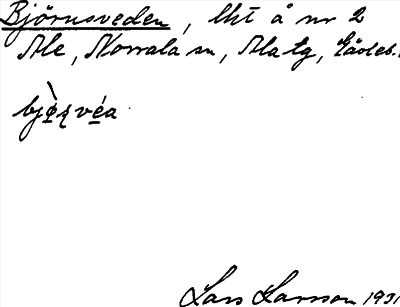 Björnsveden, lht å nr 2
Ale, Norrala sn, Ala tg, Gävleb.
bjö̀ɳvéa
Lars Larsson 1931